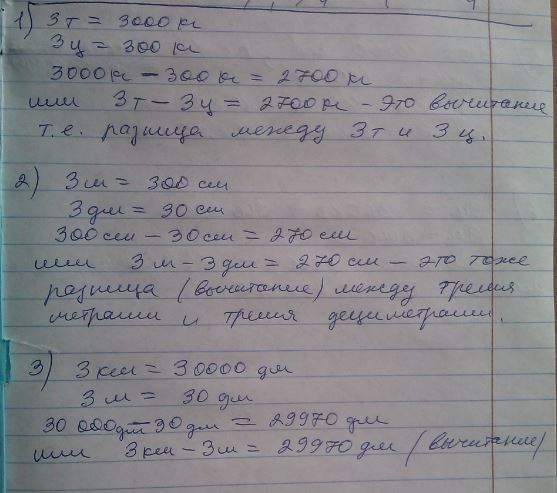 1) 3т = 3000 кг
3ц = 300 кг
3000кг - 300 кг = 2700 кг
или 3т - 3ц = 2700кг - это вычитание
т.е. разница между 3т и 3ц.
2) 3м = 300 см
3дм = 30 см
300см - 30см = 270 см
или 3м - 3дм = 270 см - это тоже
разница (вычитание) между тремя
метрами и тремя дециметрами.
3) 3км = 30000 дм
3м = 30 дм
30 000дм - 30дм = 29970 дм
или 3км - 3м = 29970 дм (вычитание)